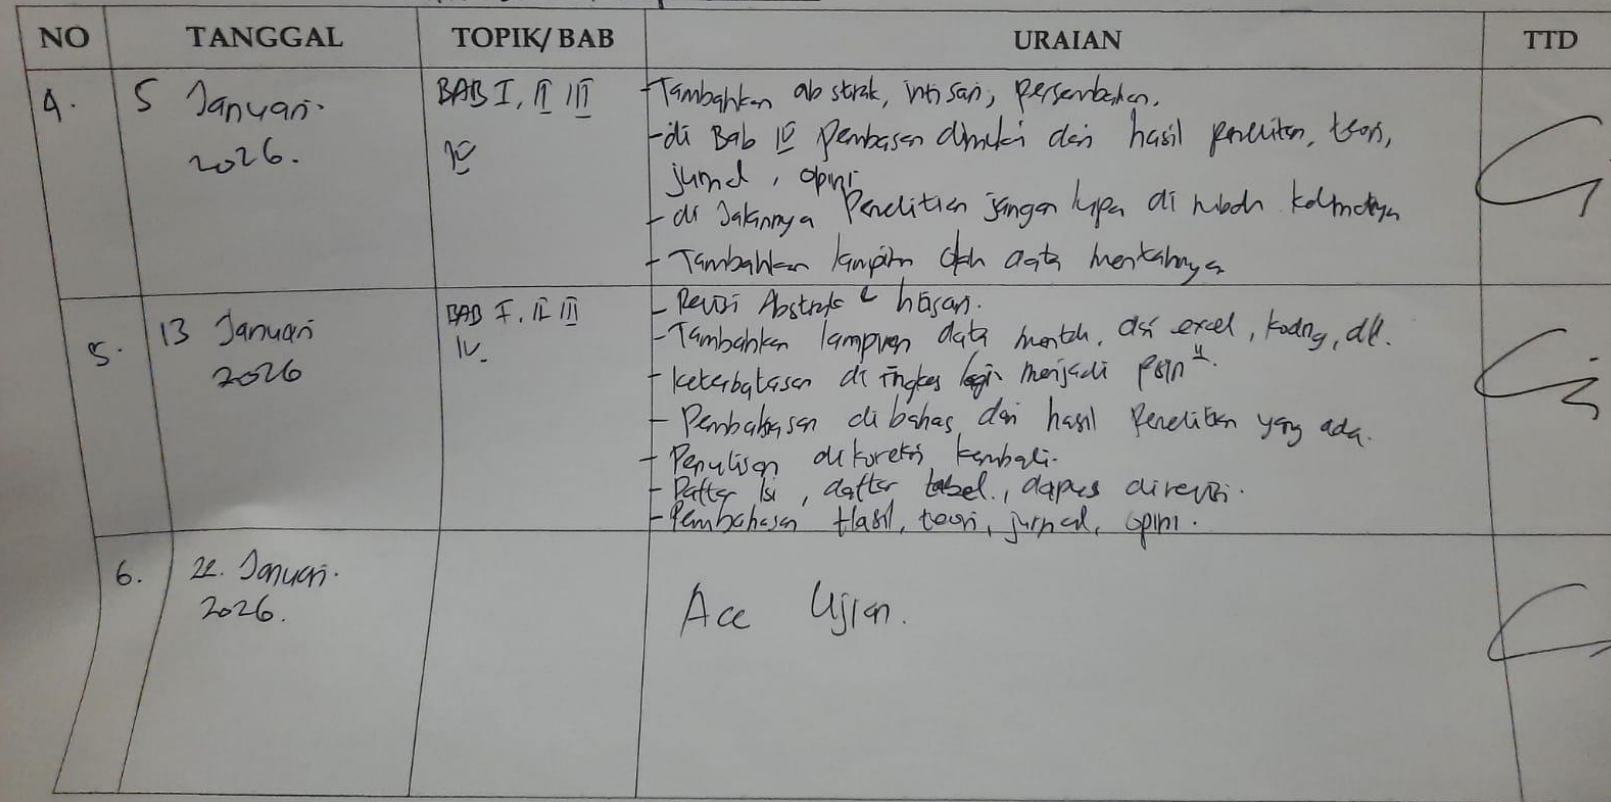 NO TANGGAL TOPIK/ BAB URAIAN TTD
4. 5 Januari. 2026. BAB I, II III IV
- Tambahkan abstrak, intisari, persembahan.
- di Bab IV Pembasan dimulai dari hasil penelitian, teori,
jurnal, opini
- di Jalannya Penelitian jangan lupa di rubah kalimatnya
- Tambahkan lampiran olah data mentahnya
5. 13 Januari 2026 BAB I. II III IV.
- Revisi Abstrak & Intisari.
- Tambahkan lampiran data mentah, dri excel, koding, dll.
- Keterbatasan di ringkas lagi menjadi poin".
- Pembahasan di bahas dari hasil Penelitian yang ada.
- Penulisan dikoreksi kembali.
- Daftar Isi, daftar tabel., dapus direvisi.
- Pembahasan Hasil, teori, jurnal, opini.
6. Januari. 2026.
Acc Ujian.